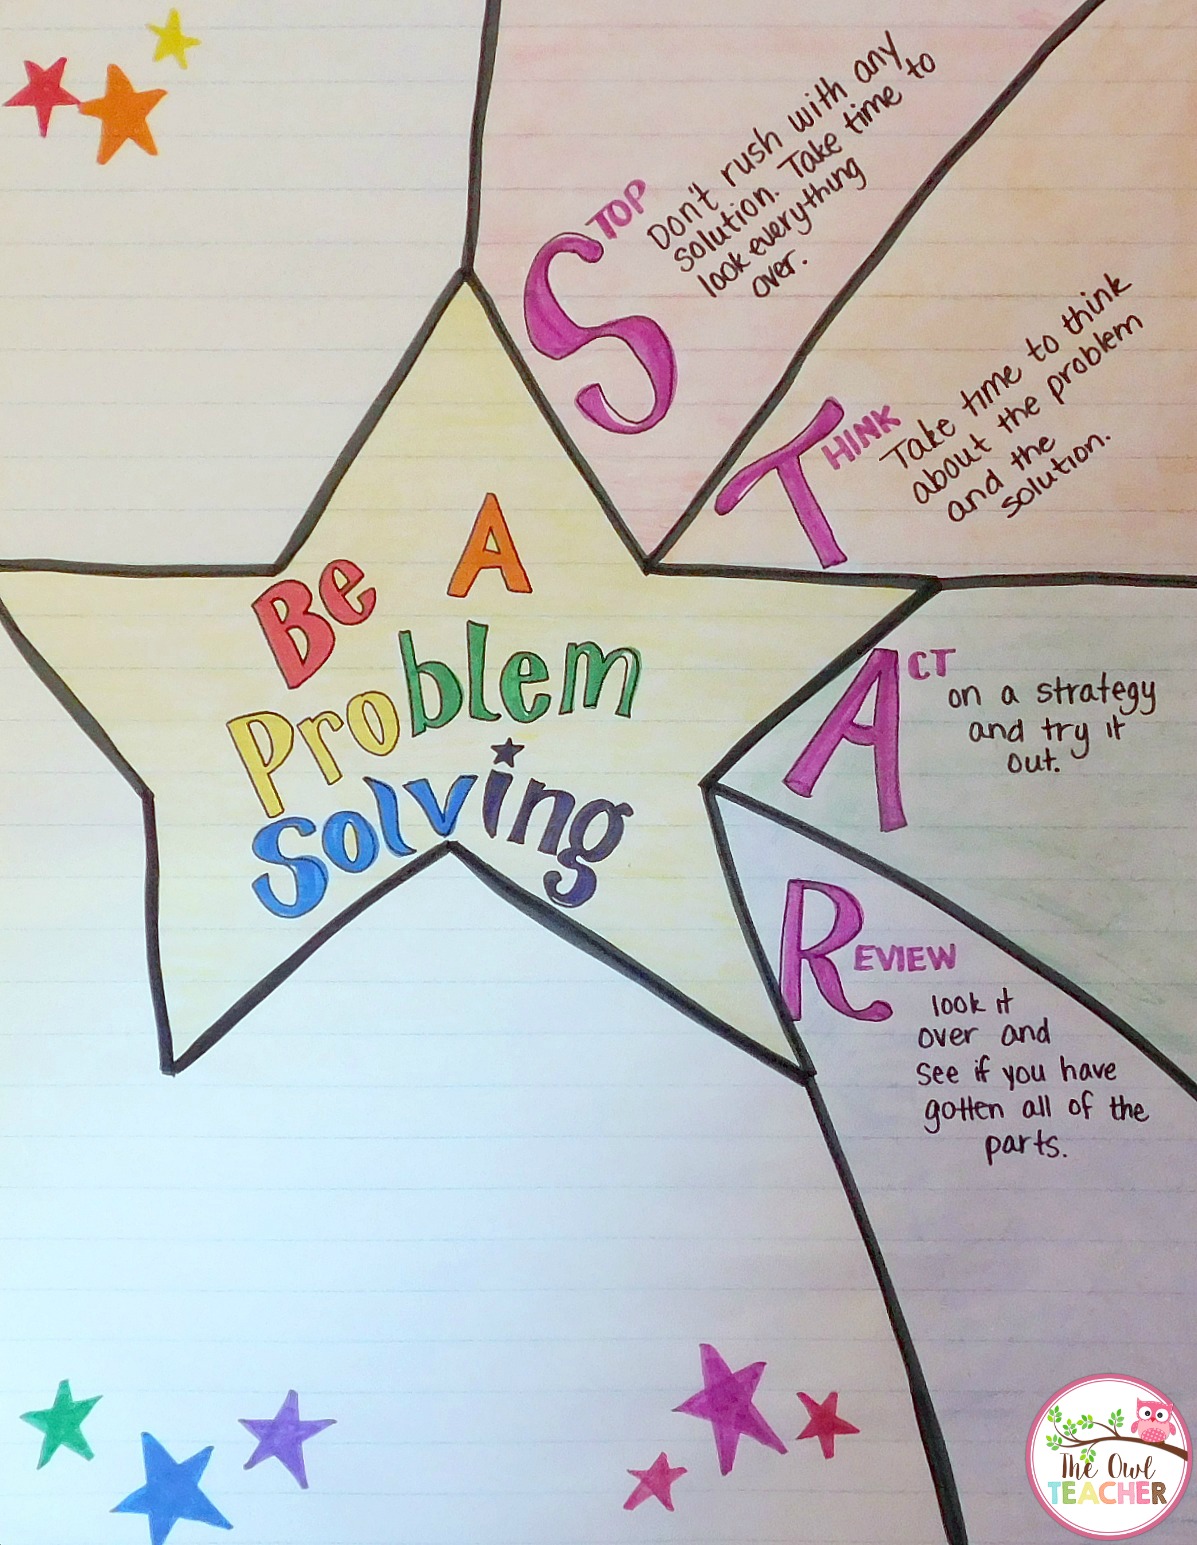 Be A
Problem
Solving
STOP
Don't rush with any
solution. Take time to
look everything
over.
THINK
Take time to think
about the problem
and the
solution.
ACT
on a strategy
and try it
out.
REVIEW
look it
over and
see if you have
gotten all of the
parts.
The Owl
TEACHER